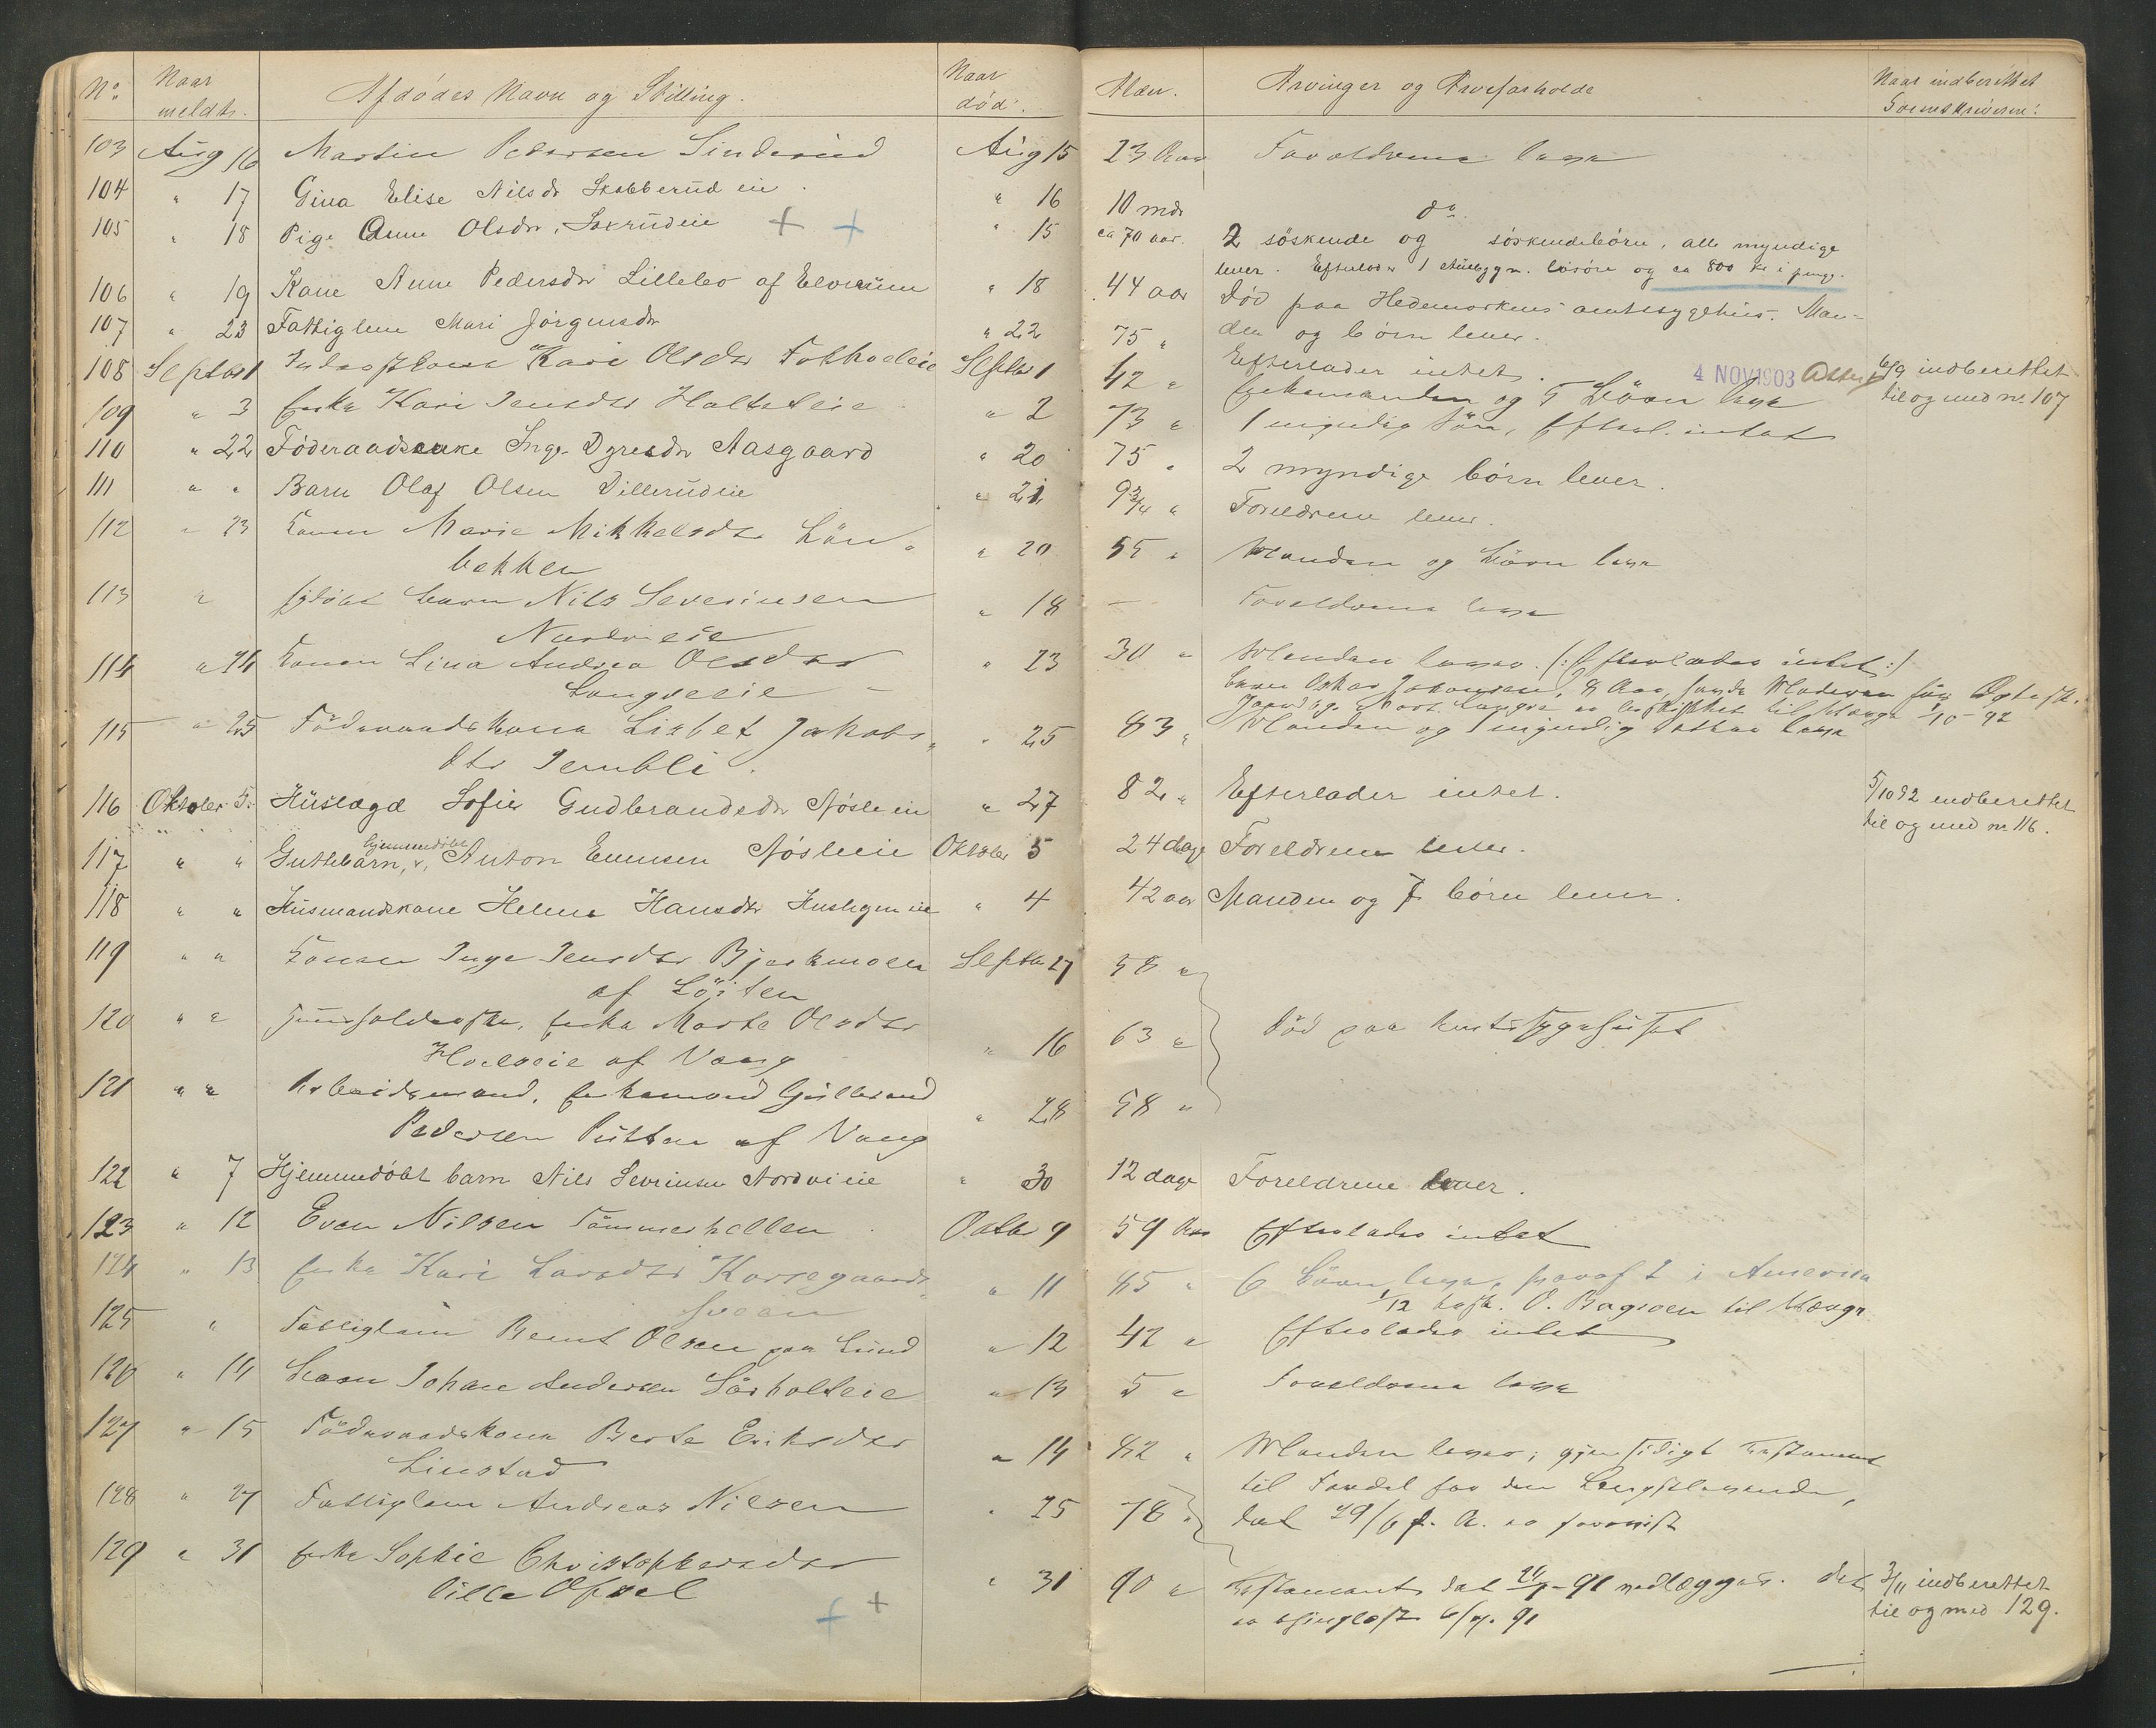 No. Naar meldt. Afdödes Navn og Stilling. Naar död. Alder. Arvinger og Arveforholde Naar indberettet Sorenskriveren:
103 Aug 16 Martin Pedersen Sinderud Aug 15 23 Aar Forældrene leve
104 " 17 Gina Elise Nilsdr Skobberud eie. " 16 10 mdr do.
105 " 18 Pige Anne Olsdr, + + " 15 ca 70 aar. 2 söskende og söskendebörn, alle myndige
lever. Efterlod 1 lösöre og ca 800 kr i peng.
106 " 19 Kone Anne Pedersdr Lillebo af Elverum " 18 44 aar Död paa Hedemarkens amtssygehus. Man-
107 " 23 Fattiglem Mari Jörgensdr " 22 75 " den og börn lever.
Efterlader intet.
108 Septbr 1 Kari Olsdr Septbr 1 42 " Enkemanden og 5 Börn leve 4 NOV 1903 6/9 indberettet
til og med nr. 107
109 " 3 Enke Kari Jensdr Holtseie " 2 73 " 1 myndig Sön, Efterl. intet
110 " 22 Föderaadsenke Inge Dyresdr Aasgaard " 20 75 " 2 myndige börn lever.
111 " " Barn Olaf Olsen Dillerudeie " 21 9 3/4 " Foreldrene lever.
112 " 23 Konen Marie Mikkelsdr Lön-
bekken " 20 55 " Manden og Börn leve
113 " Barn Nils Severinsen
" 18 — Forældrene leve
114 " 24 Konen Lina Andrea Olsdr
" 23 30 " Manden lever. (: Efterlader intet :)
Oskar Johansen, 8 Aar,
til 1/10-92
115 " 25 Föderaadskone Lisbet Jakobs-
dtr Jembli. " 25 83 " Manden og 1 myndig Datter leve
116 Oktober 5. Huslægd Sofie Gudbrandsdr Nösle eie " 27 82 " Efterlader intet. 5/10 92 indberettet
til og med nr 116.
117 " " Guttebarn, hjemmedöbt, Anton Evensen Nösleeie Oktober 5 24 dage Foreldrene lever.
118 " " Husmandskone Helene Hansdr eie " 4 42 aar Manden og 7 börn lever.
119 " " Konen Inge Jensdr Bjerkmoen
af Löiten Septbr 27 58 "
120 " " Enke Marte Olsdr
af Vang " 16 63 " Död paa Amtssygehuset
121 " " Arbeidsmand, Enkemand Gulbrand
Pedersen Putten af Vang " 28 58 "
122 " 7 Hjemmedöbt barn Nils Severinsen Nordvi eie " 30 12 dage Foreldrene lever.
123 " 12 Even Nilsen Tömmerhellen Octbr 9 59 Aar Efterlader intet
124 " 13 Enke Kari Larsdtr Korsegaards-
sveen " 11 85 " 6 Börn leve, hvoraf 2 i Amerika
1/12 O. til
125 " Fattiglem Bernt Olsen paa Lund " 12 42 " Efterlader intet
126 " 14 Barn Johan Andersen Sörholteie " 13 5 " Forældrene leve
127 " 15 Föderaadskone Berte Eriksdtr
Linstad " 14 82 " Manden lever; gjensidigt Testament
til Fordel for den Længstlevende,
128 " 27 Fattiglem Andreas Nilsen " 25 78 " dat 29/6 f. A. er forevist
129 " 31 Enke Sophie Christophersdtr
lille Opsal + + " 31 90 " Testament dat 91 vedlægges. det
er thinglæst 91
3/11 indberettet
til og med 129.